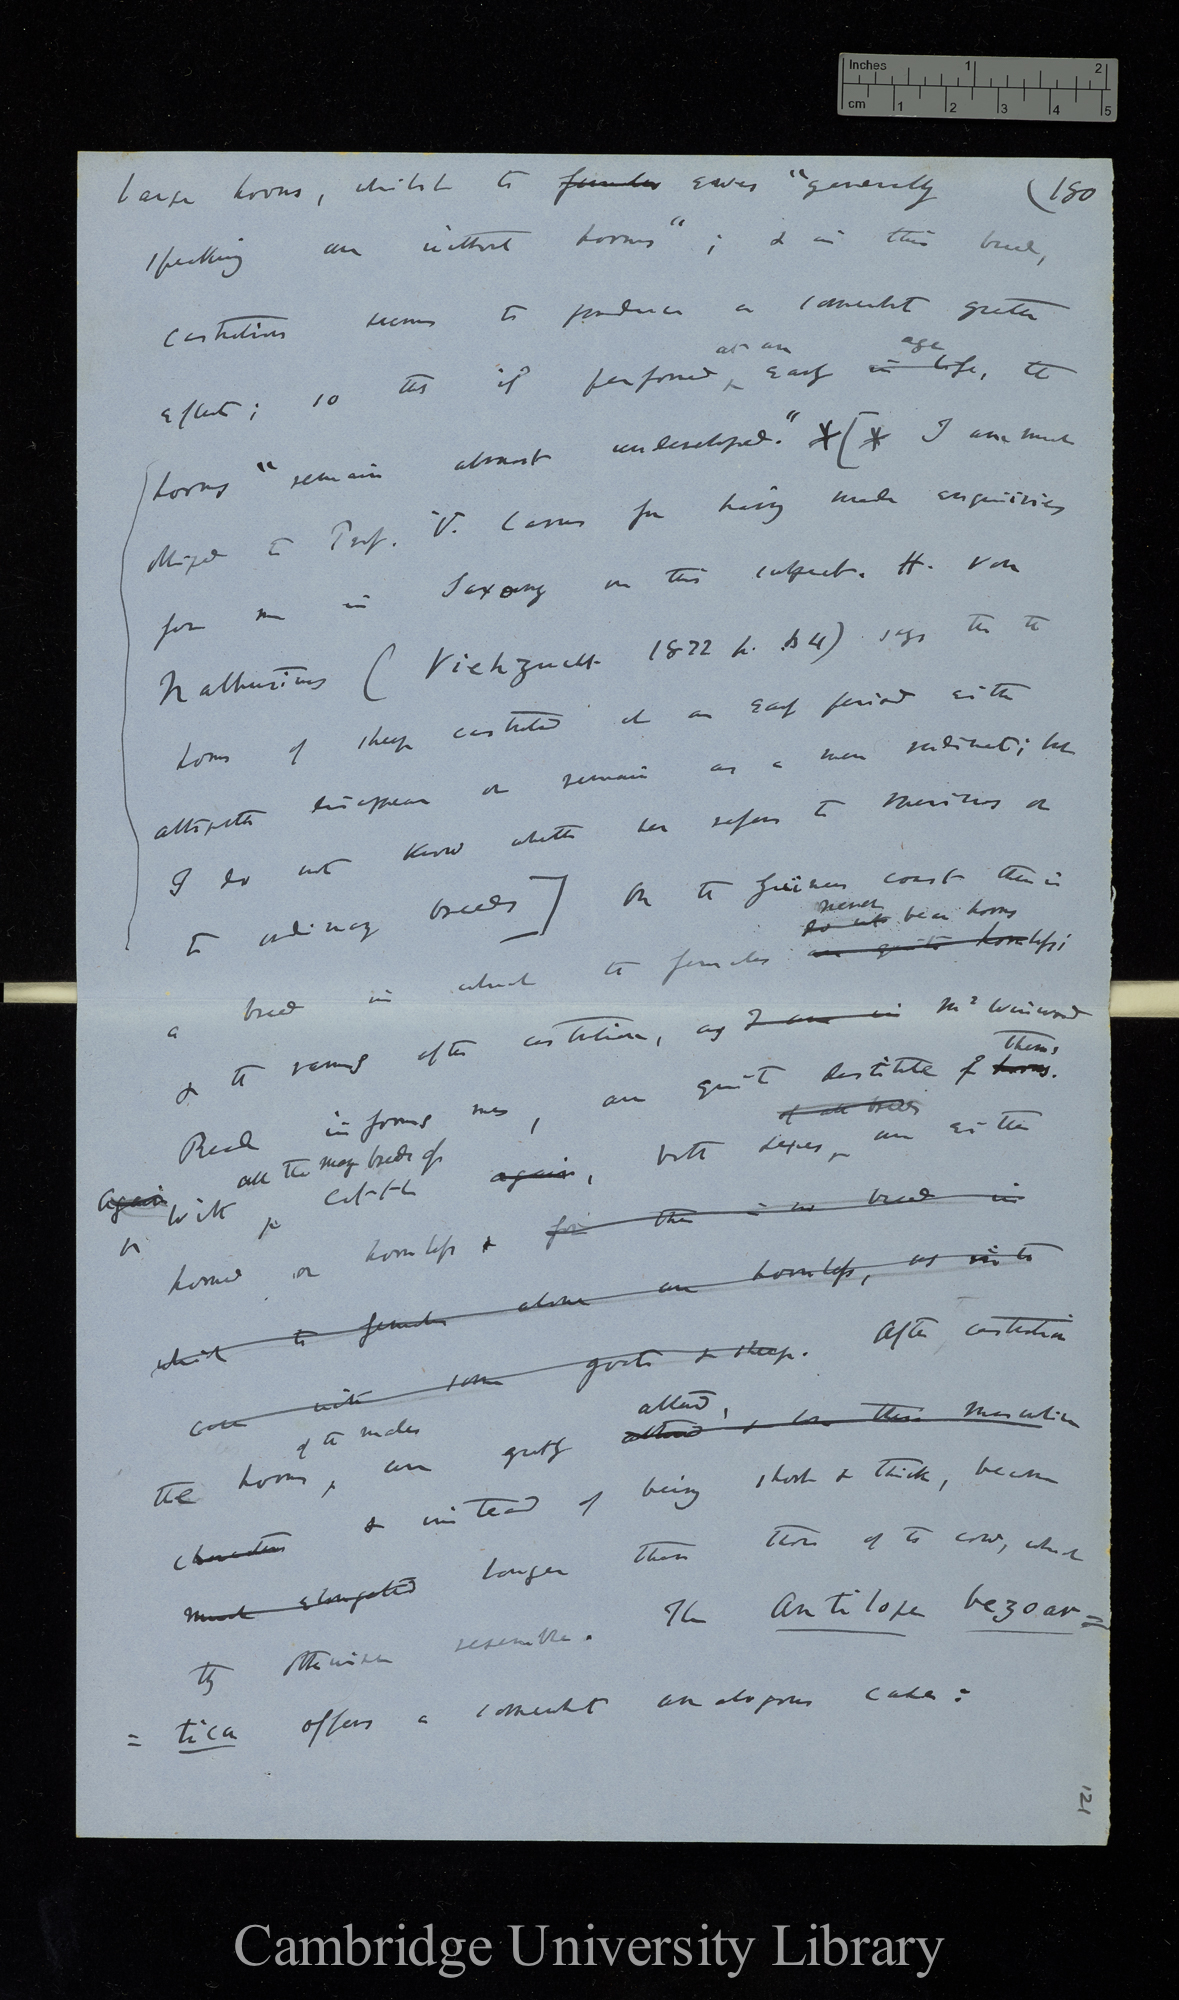 Inches 1 2
cm 1 2 3 4 5
large horns, whilst the females ewes "generally (180
speaking are without horns"; & in this breed,
castration seems to produce a somewhat greater
at an age
effect; so that if performed early in life, the
horns "remain almost undeveloped." * [* I am much
obliged to Prof. V. Carus for having made enquiries
for me in Saxony on this subject. H. von
Nathusius (Viehzucht 1872 p. 64) says that the
horns of sheep castrated at an early period either
altogether disappear or remain as a mere rudiment; but
I do not know whether he refers to merinos or
to ordinary breeds] On the Guinea coast there is
never bear horns
do not
a breed in which the females are quite hornless;
& the rams after castration, as I am in Mr Winwood
Reade informs me, are quite destitute of horns.
them
of all breeds
all the many breeds of
Again With cattle again, both sexes, are either
horned or hornless & for there is no breed in
which the females alone are hornless, as in the
case with some goats & sheep. After castration
of the males altered,
the horns, are greatly altered & lose their masculine
characters & instead of being short & thick, become
much elongated longer than those of the cow, which
they otherwise resemble. The Antilope bezoar=
=tica offers a somewhat analogous case:
121
Cambridge University Library